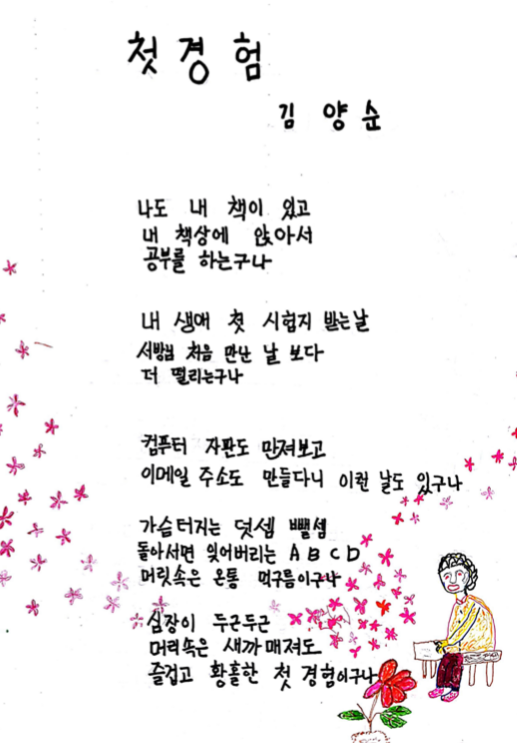 첫경험
김 양 순
나도 내 책이 있고
내 책상에 앉아서
공부를 하는구나
내 생애 첫 시험지 받는날
서방님 처음 만난 날 보다
더 떨리는구나
컴퓨터 자판도 만져보고
이메일 주소도 만들다니 이런 날도 있구나
가슴터지는 덧셈 뺄셈
돌아서면 잊어버리는 A B C D
머릿속은 온통 먹구름이구나
심장이 두근두근
머리속은 새까매져도
즐겁고 황홀한 첫 경험이구나